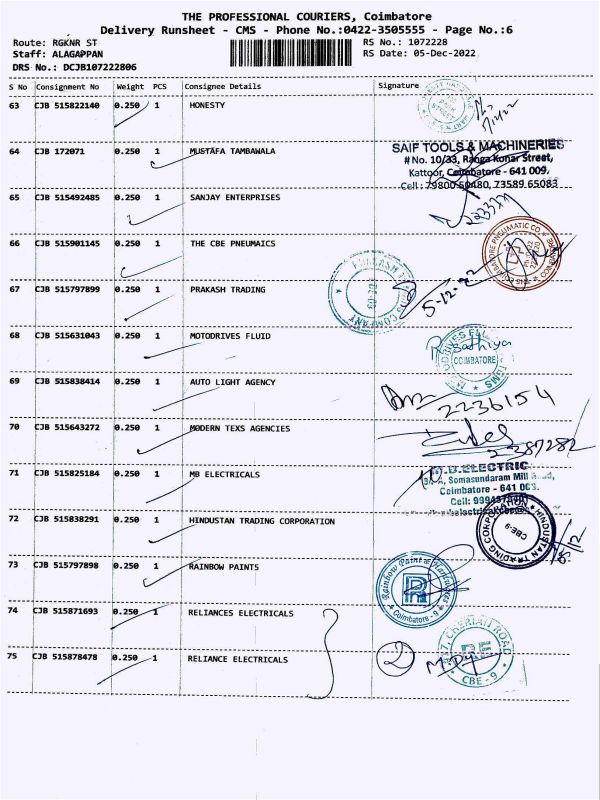 THE PROFESSIONAL COURIERS, Coimbatore
Delivery Runsheet - CMS - Phone No.:0422-3505555 - Page No.:6
Route: RGKNR ST RS No.: 1072228
Staff: ALAGAPPAN RS Date: 05-Dec-2022
DRS No.: DCJB107222806
S No Consignment No Weight PCS Consignee Details Signature
63 CJB 515822140 0.250 1 HONESTY
64 CJB 172071 0.250 1 MUSTAFA TAMBAWALA
SAIF TOOLS & MACHINERIES
# No. 10/33, Ranga Konar Street,
Kattoor, Coimbatore - 641 009.
Cell : 79800 50480, 73589 65083
65 CJB 515492485 0.250 1 SANJAY ENTERPRISES
66 CJB 515901145 0.250 1 THE CBE PNEUMAICS
67 CJB 515797899 0.250 1 PRAKASH TRADING
5-12-22
68 CJB 515631043 0.250 1 MOTODRIVES FLUID
Sathiya
COIMBATORE
69 CJB 515838414 0.250 1 AUTO LIGHT AGENCY
2236154
70 CJB 515643272 0.250 1 MODERN TEXS AGENCIES
2387282
71 CJB 515825184 0.250 1 MB ELECTRICALS
M.B.ELECTRIC
Somasundaram Mill Road,
Coimbatore - 641 009.
72 CJB 515838291 0.250 1 HINDUSTAN TRADING CORPORATION
HINDUSTAN TRADING CORPORATION
CBE-9
73 CJB 515797898 0.250 1 RAINBOW PAINTS
Rainbow Paint &
Coimbatore - 9
74 CJB 515871693 0.250 1 RELIANCES ELECTRICALS
75 CJB 515878478 0.250 1 RELIANCE ELECTRICALS
2
RE
CBE - 9